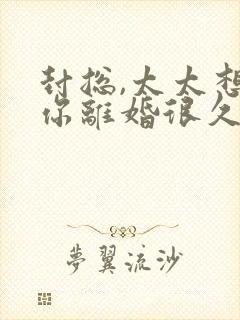 封总,太太想
你離婚很久
夢翼流沙